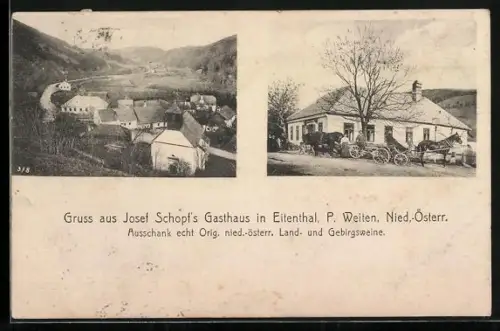 318
Gruss aus Josef Schopf's Gasthaus in Eitenthal, P. Weiten, Nied.-Österr.
Ausschank echt Orig. nied.-österr. Land- und Gebirgsweine.